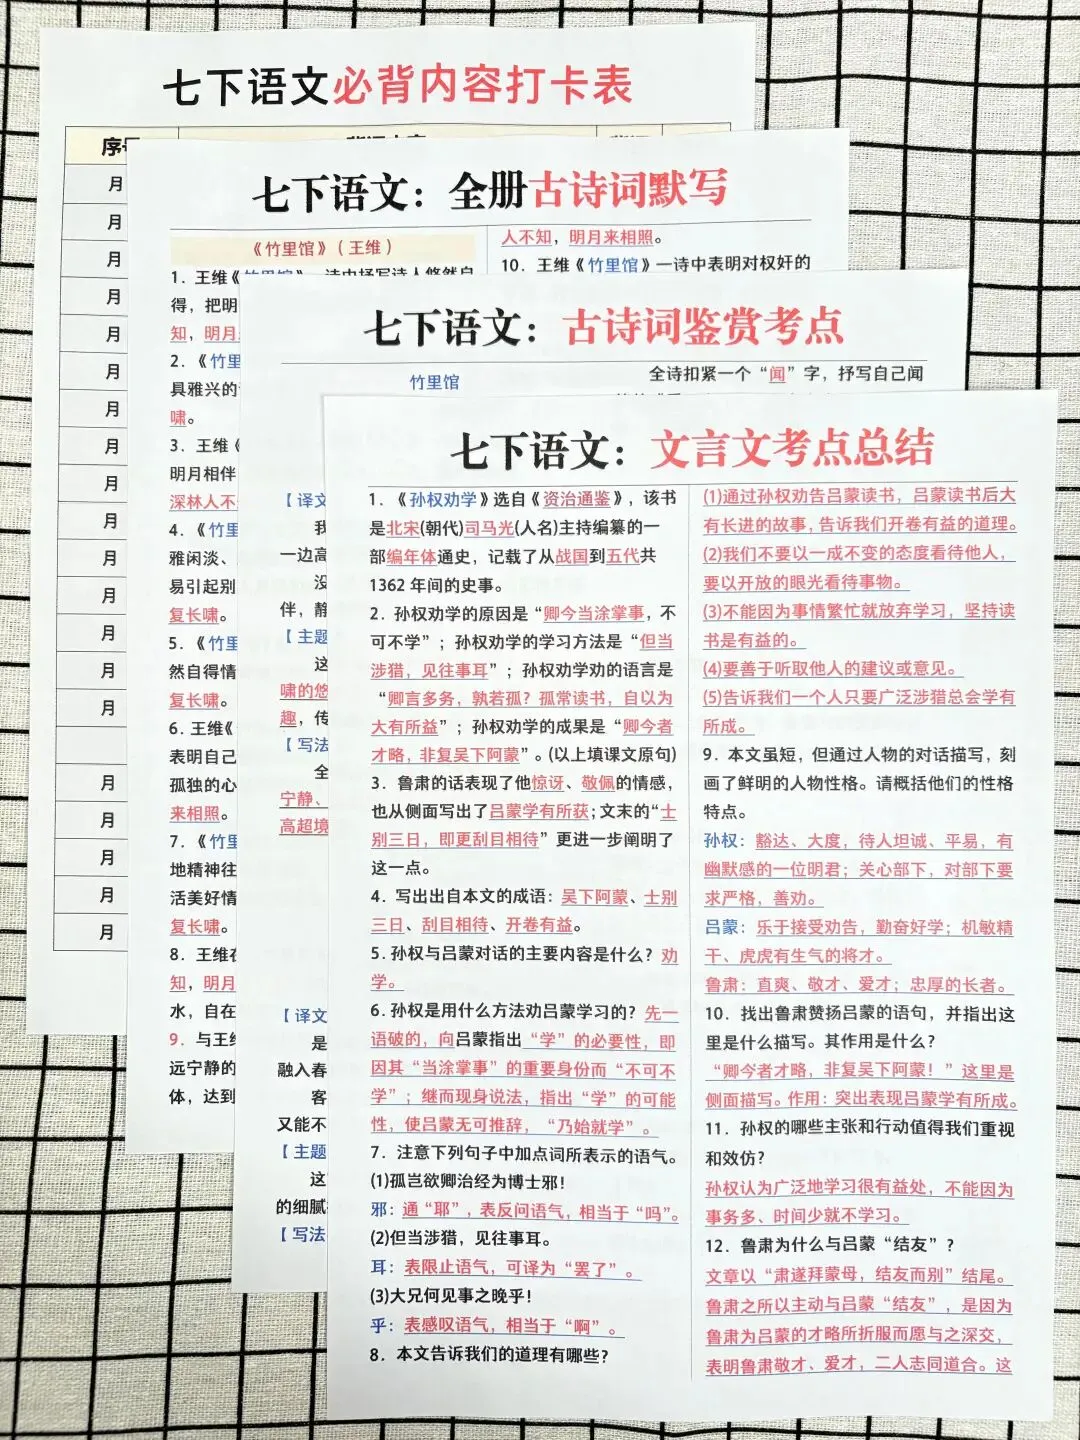 七下语文必背内容打卡表
月
月
月
月
月
月
月
月
月
月
月
月
月
月
月
月
月
月
月
月
七下语文：全册古诗词默写
《竹里馆》（王维）
1. 王维《竹里馆》一诗中抒写诗人悠然自
得，把明
知，明月
2. 《竹里
具雅兴的
啸。
3. 王维《
明月相伴
深林人不
4. 《竹里
雅闲淡、
易引起别
复长啸。
5. 《竹里
然自得情
复长啸。
6. 王维《
表明自己
孤独的心
来相照。
7. 《竹里
地精神往
活美好情
复长啸。
8. 王维在
知，明月
水，自在
9. 与王维
远宁静的
体，达到
人不知，明月来相照。
10. 王维《竹里馆》一诗中表明对权奸的
七下语文：古诗词鉴赏考点
竹里馆
【译文
我
一边高
没
伴，静
【主题
这
啸的悠
趣，传
【写法
全
宁静、
高超境
【译文
是
融入春
客
又能不
【主题
这
的细腻
【写法
全诗扣紧一个“闻”字，抒写自己闻
七下语文：文言文考点总结
1. 《孙权劝学》选自《资治通鉴》，该书
是北宋(朝代)司马光(人名)主持编纂的一
部编年体通史，记载了从战国到五代共
1362 年间的史事。
2. 孙权劝学的原因是“卿今当涂掌事，不
可不学”；孙权劝学的学习方法是“但当
涉猎，见往事耳”；孙权劝学劝的语言是
“卿言多务，孰若孤？孤常读书，自以为
大有所益”；孙权劝学的成果是“卿今者
才略，非复吴下阿蒙”。(以上填课文原句)
3. 鲁肃的话表现了他惊讶、敬佩的情感，
也从侧面写出了吕蒙学有所获；文末的“士
别三日，即更刮目相待”更进一步阐明了
这一点。
4. 写出出自本文的成语：吴下阿蒙、士别
三日、刮目相待、开卷有益。
5. 孙权与吕蒙对话的主要内容是什么？劝
学。
6. 孙权是用什么方法劝吕蒙学习的？先一
语破的，向吕蒙指出“学”的必要性，即
因其“当涂掌事”的重要身份而“不可不
学”；继而现身说法，指出“学”的可能
性，使吕蒙无可推辞，“乃始就学”。
7. 注意下列句子中加点词所表示的语气。
(1)孤岂欲卿治经为博士邪！
邪：通“耶”，表反问语气，相当于“吗”。
(2)但当涉猎，见往事耳。
耳：表限止语气，可译为“罢了”。
(3)大兄何见事之晚乎！
乎：表感叹语气，相当于“啊”。
8. 本文告诉我们的道理有哪些？
(1)通过孙权劝告吕蒙读书，吕蒙读书后大
有长进的故事，告诉我们开卷有益的道理。
(2)我们不要以一成不变的态度看待他人，
要以开放的眼光看待事物。
(3)不能因为事情繁忙就放弃学习，坚持读
书是有益的。
(4)要善于听取他人的建议或意见。
(5)告诉我们一个人只要广泛涉猎总会学有
所成。
9. 本文虽短，但通过人物的对话描写，刻
画了鲜明的人物性格。请概括他们的性格
特点。
孙权：豁达、大度，待人坦诚、平易，有
幽默感的一位明君；关心部下，对部下要
求严格，善劝。
吕蒙：乐于接受劝告，勤奋好学；机敏精
干、虎虎有生气的将才。
鲁肃：直爽、敬才、爱才；忠厚的长者。
10. 找出鲁肃赞扬吕蒙的语句，并指出这
里是什么描写。其作用是什么？
“卿今者才略，非复吴下阿蒙！”这里是
侧面描写。作用：突出表现吕蒙学有所成。
11. 孙权的哪些主张和行动值得我们重视
和效仿？
孙权认为广泛地学习很有益处，不能因为
事务多、时间少就不学习。
12. 鲁肃为什么与吕蒙“结友”？
文章以“肃遂拜蒙母，结友而别”结尾。
鲁肃之所以主动与吕蒙“结友”，是因为
鲁肃为吕蒙的才略所折服而愿与之深交，
表明鲁肃敬才、爱才，二人志同道合。这